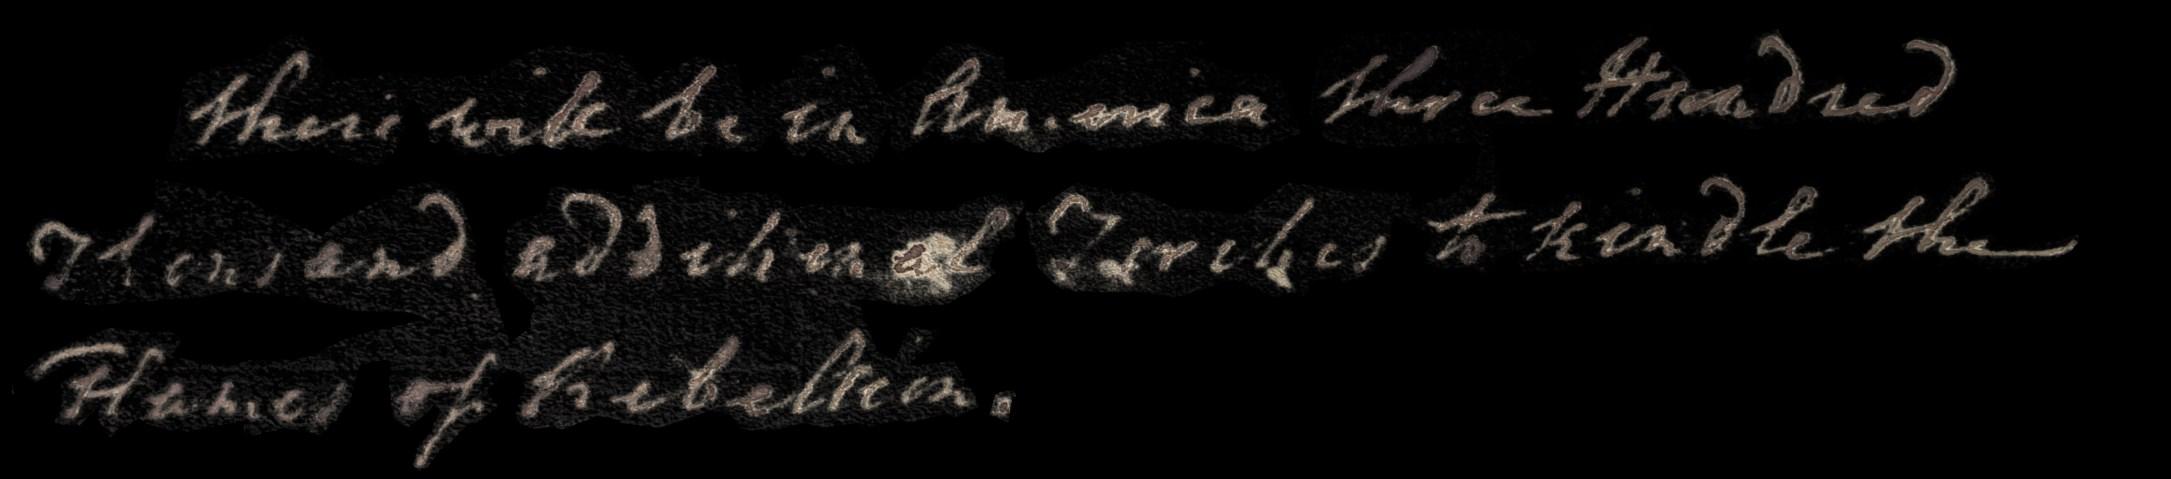 there will be in America three Hundred
Thousand additional Torches to kindle the
Flames of Rebellion.